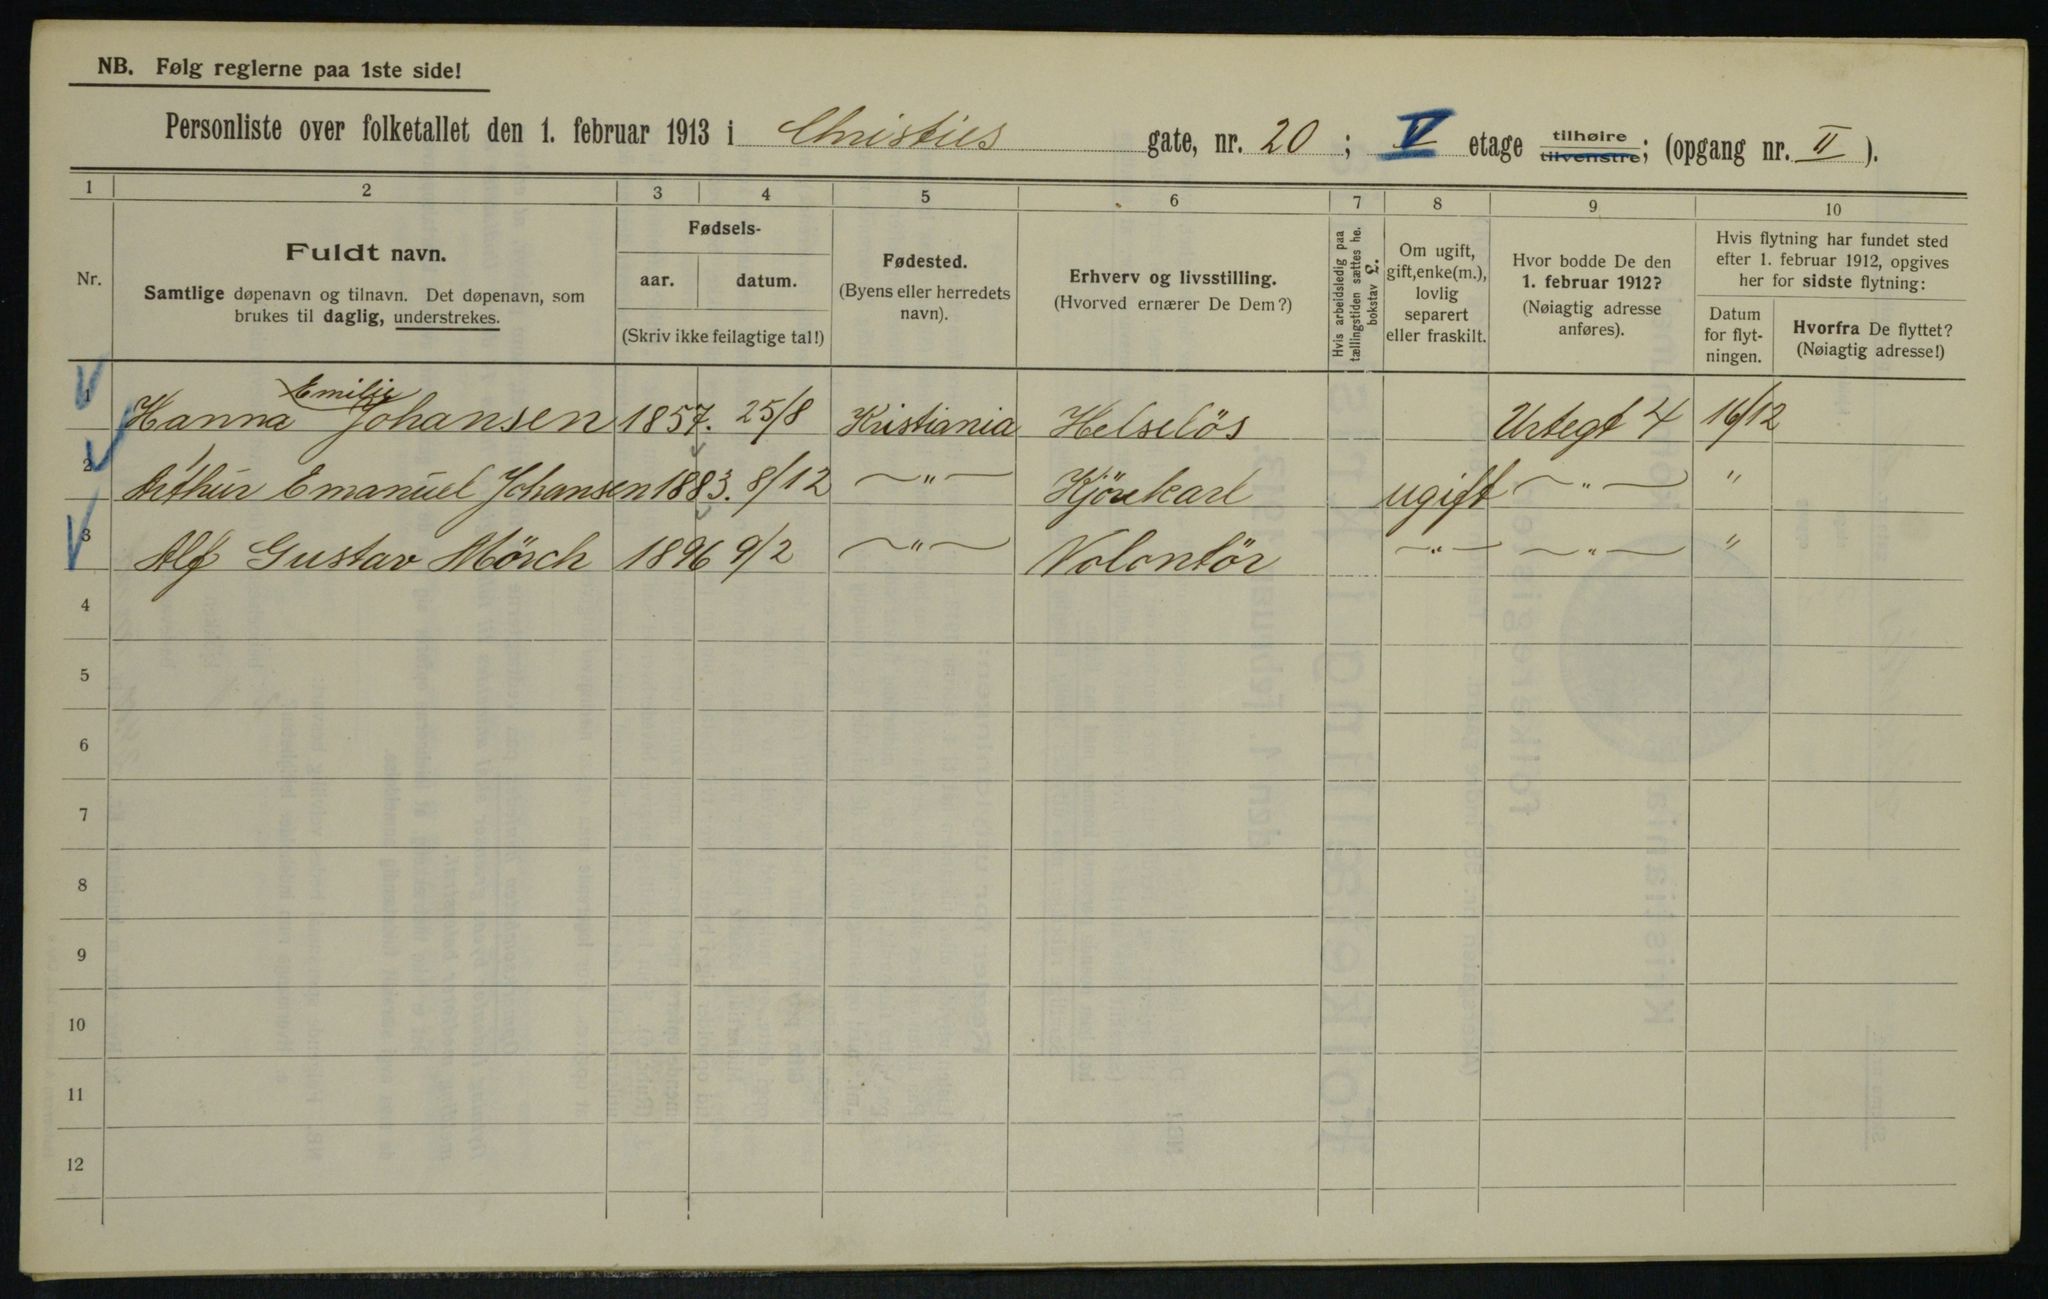 NB. Følg reglerne paa 1ste side!
Personliste over folketallet den 1. februar 1913 i Christies gate, nr. 20 ; V etage tilhøire tilvenstre; (opgang nr. II ).
1 2 3 4 5 6 7 8 9 10
Nr.
Fuldt navn.
Samtlige døpenavn og tilnavn. Det døpenavn, som
brukes til daglig, understrekes.
Fødsels-
aar. datum.
(Skriv ikke feilagtige tal!)
Fødested.
(Byens eller herredets
navn).
Erhverv og livsstilling.
(Hvorved ernærer De Dem?)
Hvis arbeidsledig paa
tællingstiden sættes he.
bokstav L.
Om ugift,
gift, enke(m.),
lovlig
separert
eller fraskilt.
Hvor bodde De den
1. februar 1912?
(Nøiagtig adresse
anføres).
Hvis flytning har fundet sted
efter 1. februar 1912, opgives
her for sidste flytning:
Datum
for flyt-
ningen.
Hvorfra De flyttet?
(Nøiagtig adresse!)
Emilie
1 Hanna Johansen 1857. 25/8 Kristiania Helselös Urtegt 4 16/12
2 Arthur Emanuel Johansen 1883. 8/12 —"— Kjörekarl ugift —"— "
3 Alf Gustav Mörch 1896 9/2 —"— Volontör —"— —"— "
4
5
6
7
8
9
10
11
12